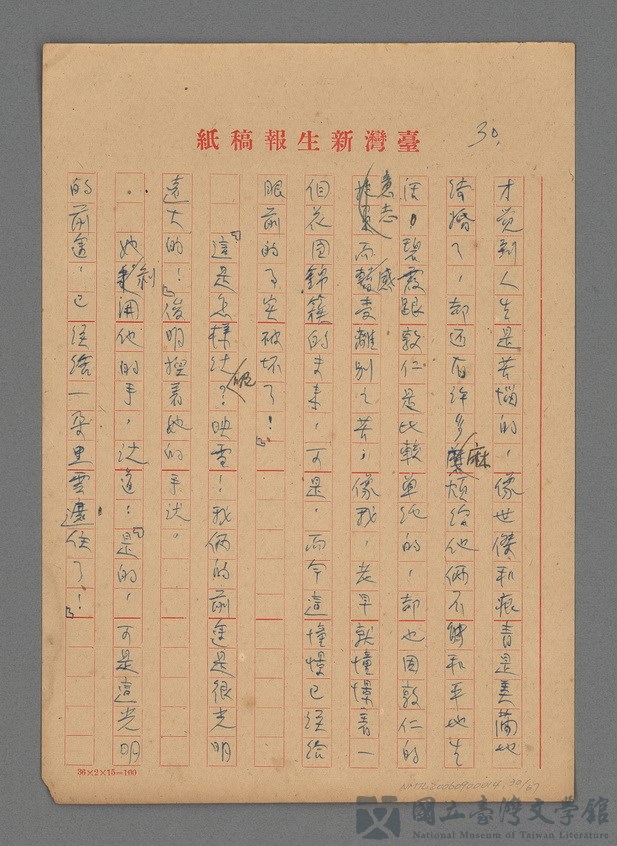 紙稿報生新灣臺
30.
才覺到人生是苦惱的，像世傑和痕青是美滿地
結婚了，却还有許多麻煩給他倆不能和平地生
活，碧霞跟敦仁是比較單純的，却也因敦仁的
意志而感受離別之苦；像我，老早就憧憬着一
個花園錦簇的未来，可是，而今這憧憬已經給
眼前的事突破坏了！』
『這是怎樣说呢？映雪！我倆的前途是很光明
遠大的！』俊明捏着她的手说，
。她剝開他的手，说道：『是的，可是這光明
的前途，已經給一朵黑雲遮住了！』
36×2×15=100
NMTL20060900014.30/67
國立臺灣文學館
National Museum of Taiwan Literature